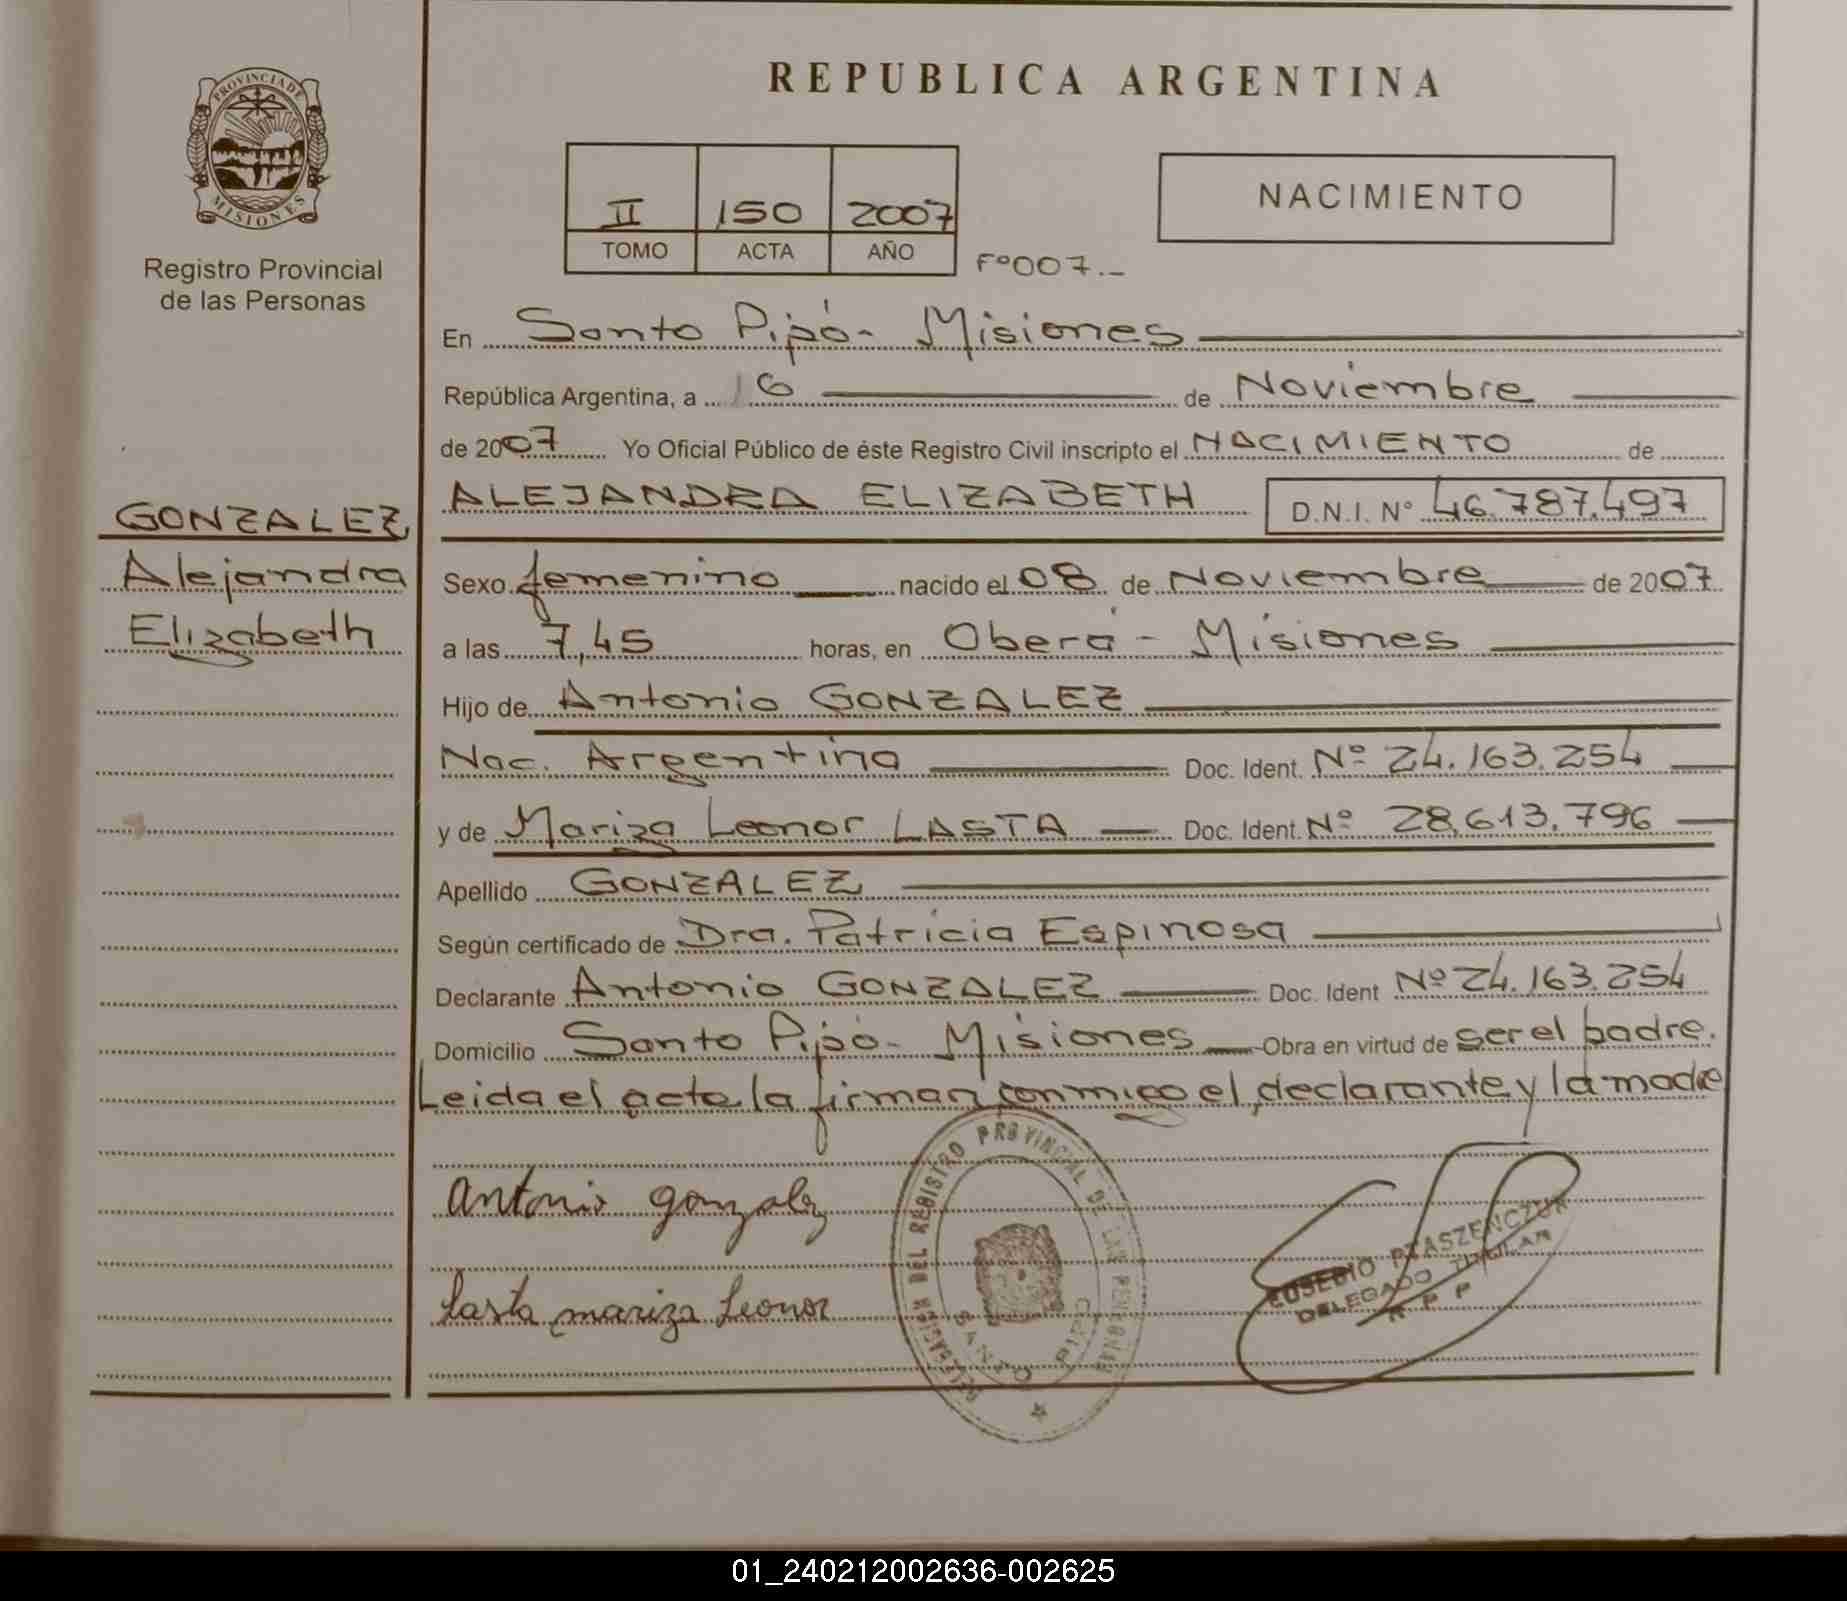 PROVINCIA DE
MISIONES
Registro Provincial
de las Personas
GONZALEZ
Alejandra
Elizabeth
REPUBLICA ARGENTINA
II 150 2007
TOMO ACTA AÑO
Fº007.-
NACIMIENTO
En Santo Pipó - Misiones
República Argentina, a 16 de Noviembre
de 2007 Yo Oficial Público de éste Registro Civil inscripto el NACIMIENTO de
ALEJANDRA ELIZABETH D.N.I. Nº 46.787.497
Sexo femenino nacido el 08 de Noviembre de 2007
a las 7,45 horas, en Oberá - Misiones
Hijo de Antonio GONZALEZ
Nac. Argentina Doc. Ident. Nº 24.163.254
y de Mariza Leonor LASTA Doc. Ident. Nº 28.613.796
Apellido GONZALEZ
Según certificado de Dra. Patricia Espinosa
Declarante Antonio GONZALEZ Doc. Ident Nº 24.163.254
Domicilio Santo Pipó - Misiones Obra en virtud de ser el padre.
Leida el acta la firman conmigo el declarante y la madre
Antonio gonzalez
Lasta mariza Leonor
DELEGACIÓN DEL REGISTRO PROVINCIAL DE LAS PERSONAS
SANTO PIPÓ
EUSEBIO PTASZENCZUK
DELEGADO TITULAR
R P P
01_240212002636-002625